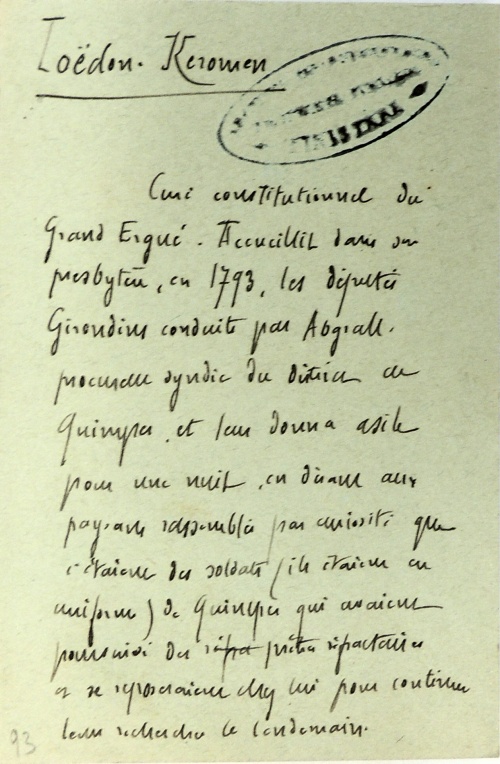 Loëdon-Keromen
FINISTERE
Curé constitutionnel du
Grand Ergué. Accueillit dans son
presbytère, en 1793, les députés
Girondins conduits par Abgrall,
procureur syndic du district de
Quimper, et leur donna asile
pour une nuit, en disant aux
paysans rassemblés par curiosité que
c'étaient des soldats (ils étaient en
uniforme) de Quimper qui avaient
poursuivi des prêtres réfractaires
et se reposeraient chez lui pour continuer
leurs recherches le lendemain.
93